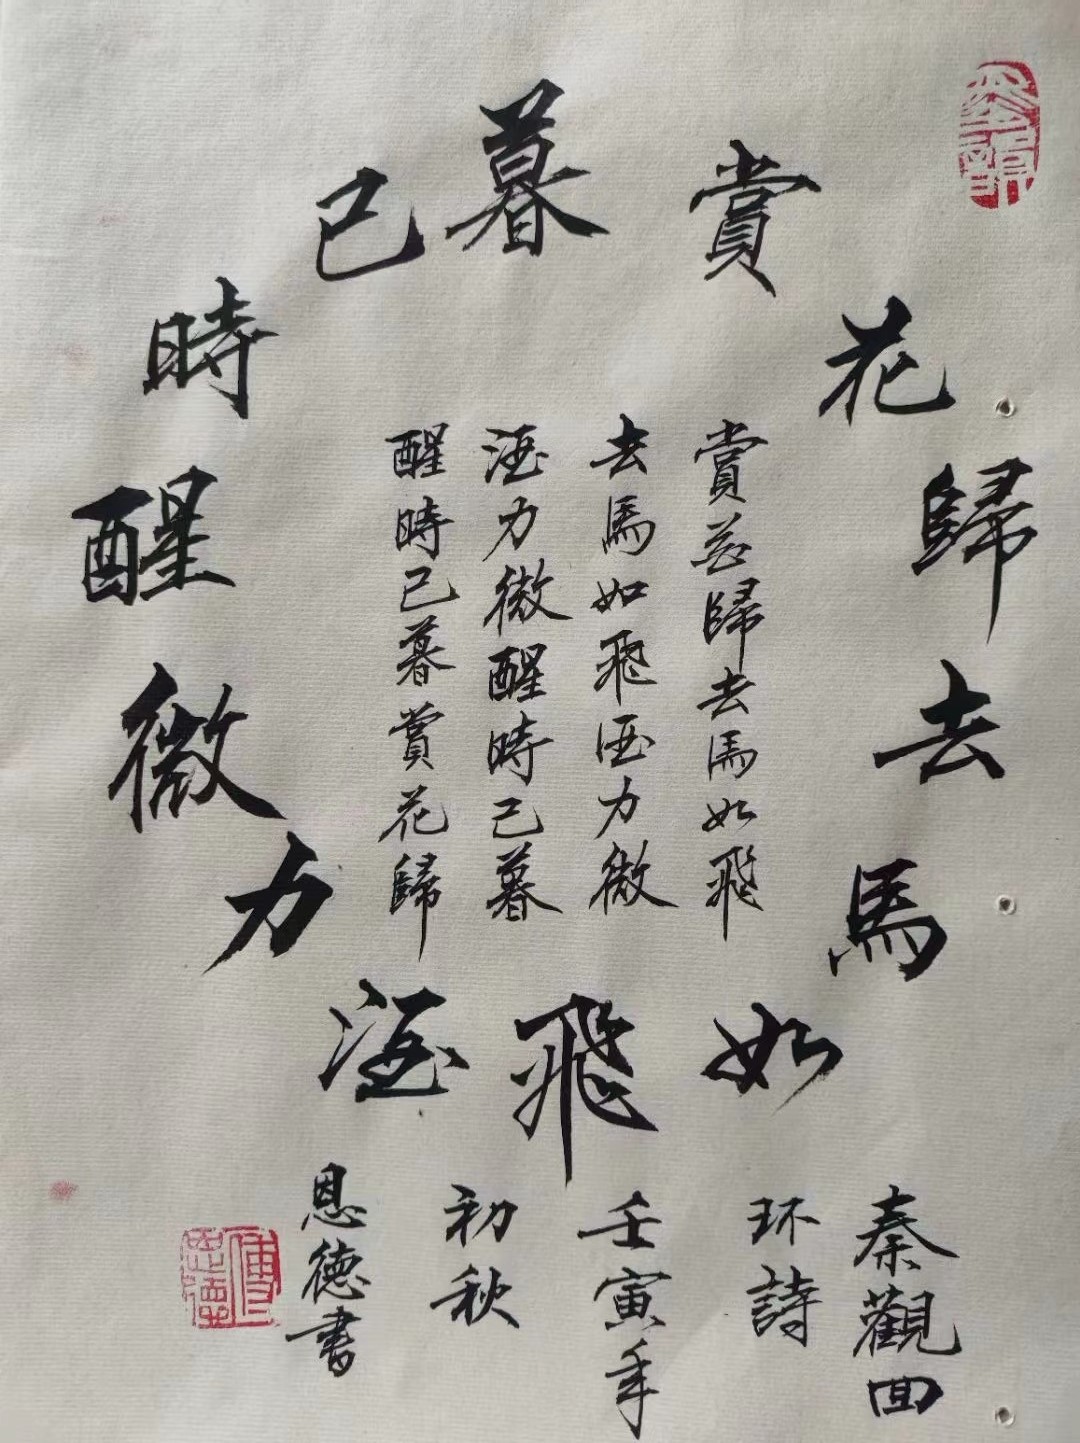 賞花歸去馬如飛酒力微醒時已暮
賞花歸去馬如飛
去馬如飛酒力微
酒力微醒時已暮
醒時已暮賞花歸
秦觀回
环詩
壬寅年
初秋
恩德書